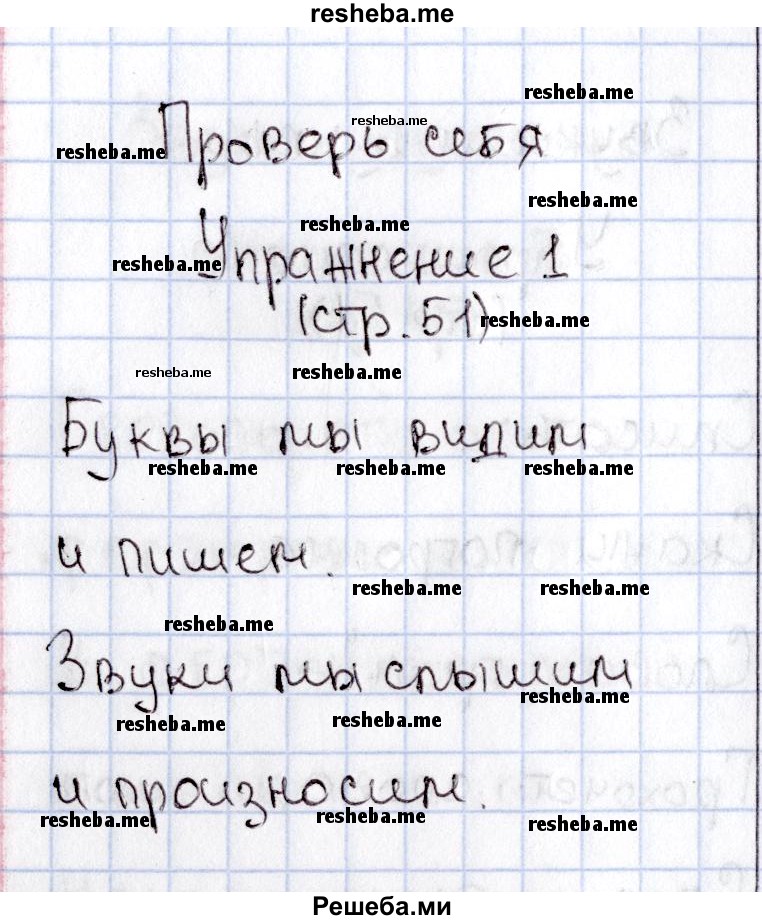 resheba.me
resheba.me
Проверь себя
resheba.me
resheba.me
resheba.me
resheba.me
Упражнение 1
resheba.me
(стр. 51)
resheba.me
resheba.me
resheba.me
Буквы мы видим
resheba.me resheba.me resheba.me
и пишем.
resheba.me resheba.me
resheba.me
Звуки мы слышим
resheba.me
resheba.me resheba.me
и произносим.
resheba.me resheba.me resheba.me
Решеба.ми